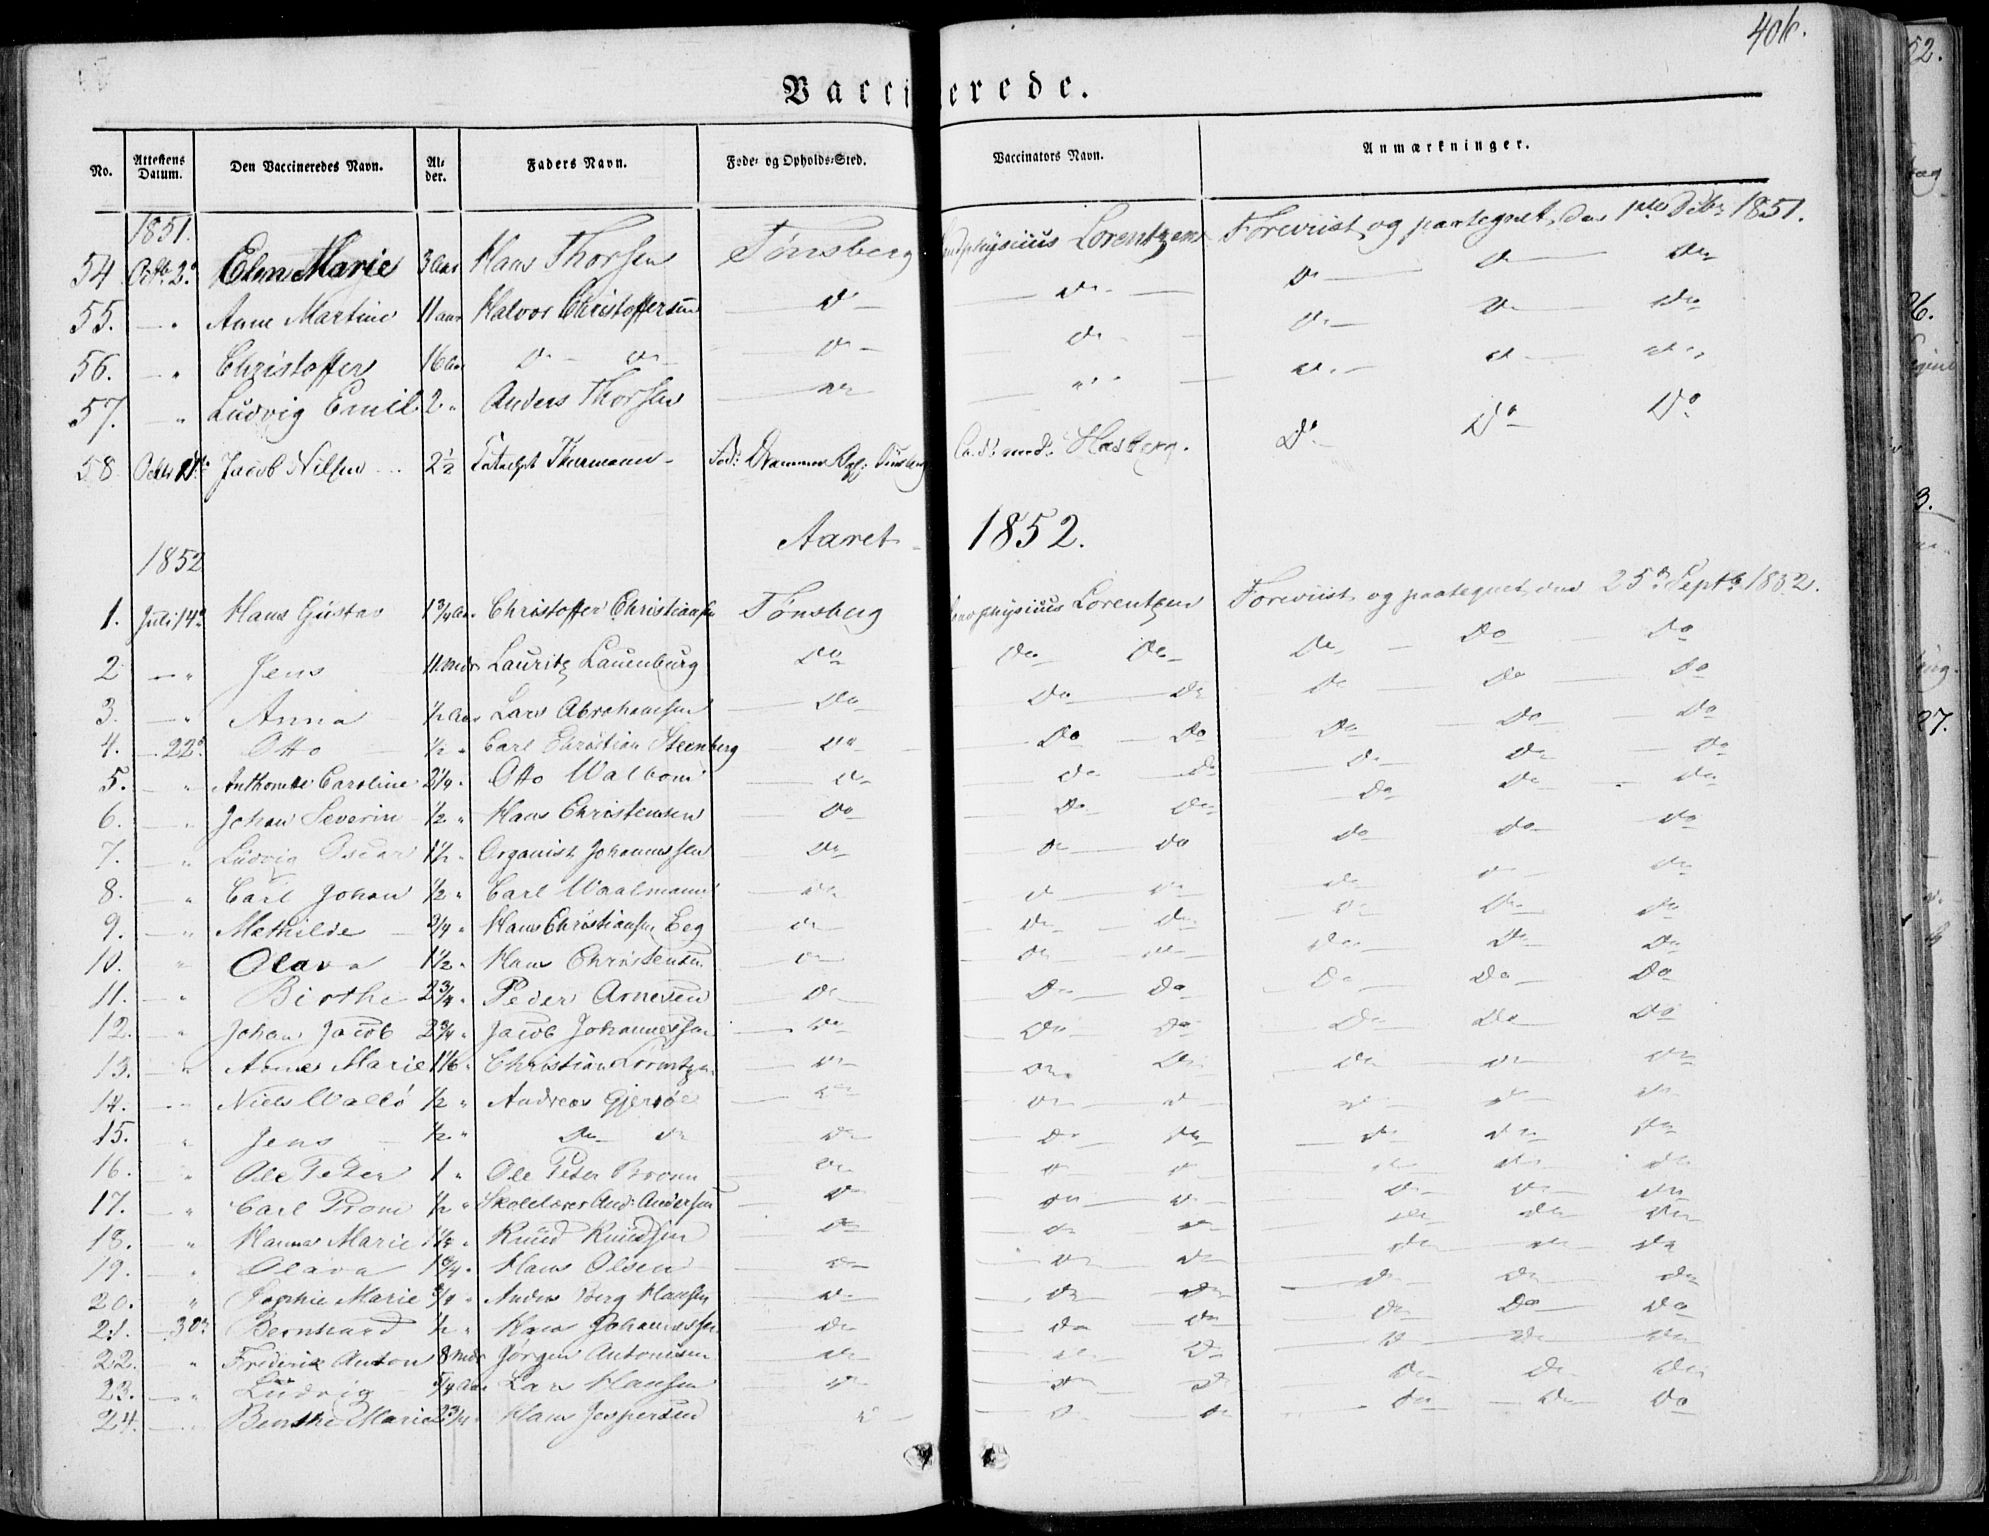 406.
Vaccinerede.
No. Attestens Datum. Den Vaccineredes Navn. Al- der. Faders Navn. Føde- og Opholds-Sted. Vaccinators Navn. Anmærkninger.
1851.
54 Octb. 2d Elen Marie 3 Aar Hans Thorsen Tønsberg Landphysicus Lorentzen Foreviist og paategnet den 1ste Debr 1851.
55. — " Anne Martine 11 aar Halvor Christoffersen — Do — — Do — Do — Do — Do
56. — " Christoffer 16 Aar Do — Do — Do — — Do — Do — Do — Do
57. " Ludvig Emil 2 " Anders Thorsen — Do — " " — Do — Do — Do
58 Jacob Nilsen 2½ Thurmann Fød: Drammen Opf: Tønsberg Cand: med: Hasberg. Do — Do — Do
Aaret 1852.
1852
1. Juli 14d Hans Gustav 1¾ Aar. Christoffer Christiansen Tønsberg Landphysicus Lorentzen Foreviist og paategnet den 25d Septb 1852.
2 — " Jens 11 Mdr Lauritz Lauenburg Do Do — Do Do — Do — Do
3. — " Anna ½ Aar Lars Abrahamsen — Do Do — Do Do — Do — Do
4. — 22d Otto ½ " Carl Christian Steenberg Do — Do — Do Do — Do — Do
5. — " Anthonette Caroline 2¼ " Otto Walbom — Do Do — Do Do — Do — Do
6. — " Johan Severin ½ " Hans Christensen — Do Do — Do Do — Do — Do
7. — " Ludvig Oscar 1½ " Organist Johannessen — Do Do — Do Do — Do — Do
8. — " Carl Johan ½ " Carl Waalmann — Do Do — Do Do — Do — Do
9. — " Mathilde — ¾ " Hans Christiansen Eeg Do — Do — Do Do — Do — Do
10. " Olava 1½ " Hans Christensen Do — Do — Do Do — Do — Do
11. — " Birthe 2¾ " Peder Arnesen Do — Do — Do Do — Do — Do
12. " Johan Jacob 2¾ " Jacob Johannessen — Do Do — Do Do — Do — Do
13. — " Anne Marie 1⅙ " Christian Lorentzen — Do Do — Do Do — Do — Do
14. — " Niels Wallø ½ " Andreas Gjersøe — Do Do — Do Do — Do — Do
15. " Jens — ½ " Do — Do — Do Do — Do Do — Do — Do
16. " Ole Peter 1 " Ole Peter Do Do — Do Do — Do — Do
17. " Carl Prom ½ " Skolelærer And: Andersen — Do Do — Do Do — Do — Do
18. " Hanna Marie Knud Knudsen — Do Do — Do Do — Do — Do
19. " Olava 1¾ " Hans Olsen — Do Do — Do Do — Do — Do
20. " Sophie Marie ¾ " Anders Berg Hansen — Do Do — Do Do — Do — Do
21. — 30d Bernhard ½ " Hans Johannessen — Do Do — Do Do — Do — Do
22. " Frederik Anton 8 Mdr Jørgen Antonisen — Do Do — Do Do — Do — Do
23. — " Ludvig 5/4 Aar Lars Hansen — Do Do — Do Do — Do — Do
24. — " Marie 2¾ " Hans Jespersen Do — Do — Do Do — Do — Do